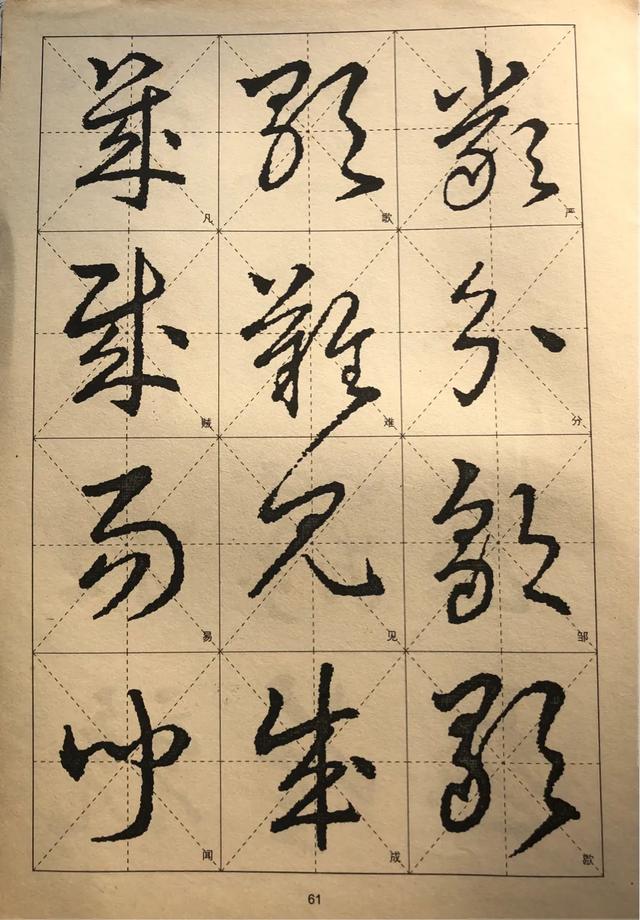 严分邹歇
歌难见成
凡贼易闻
61